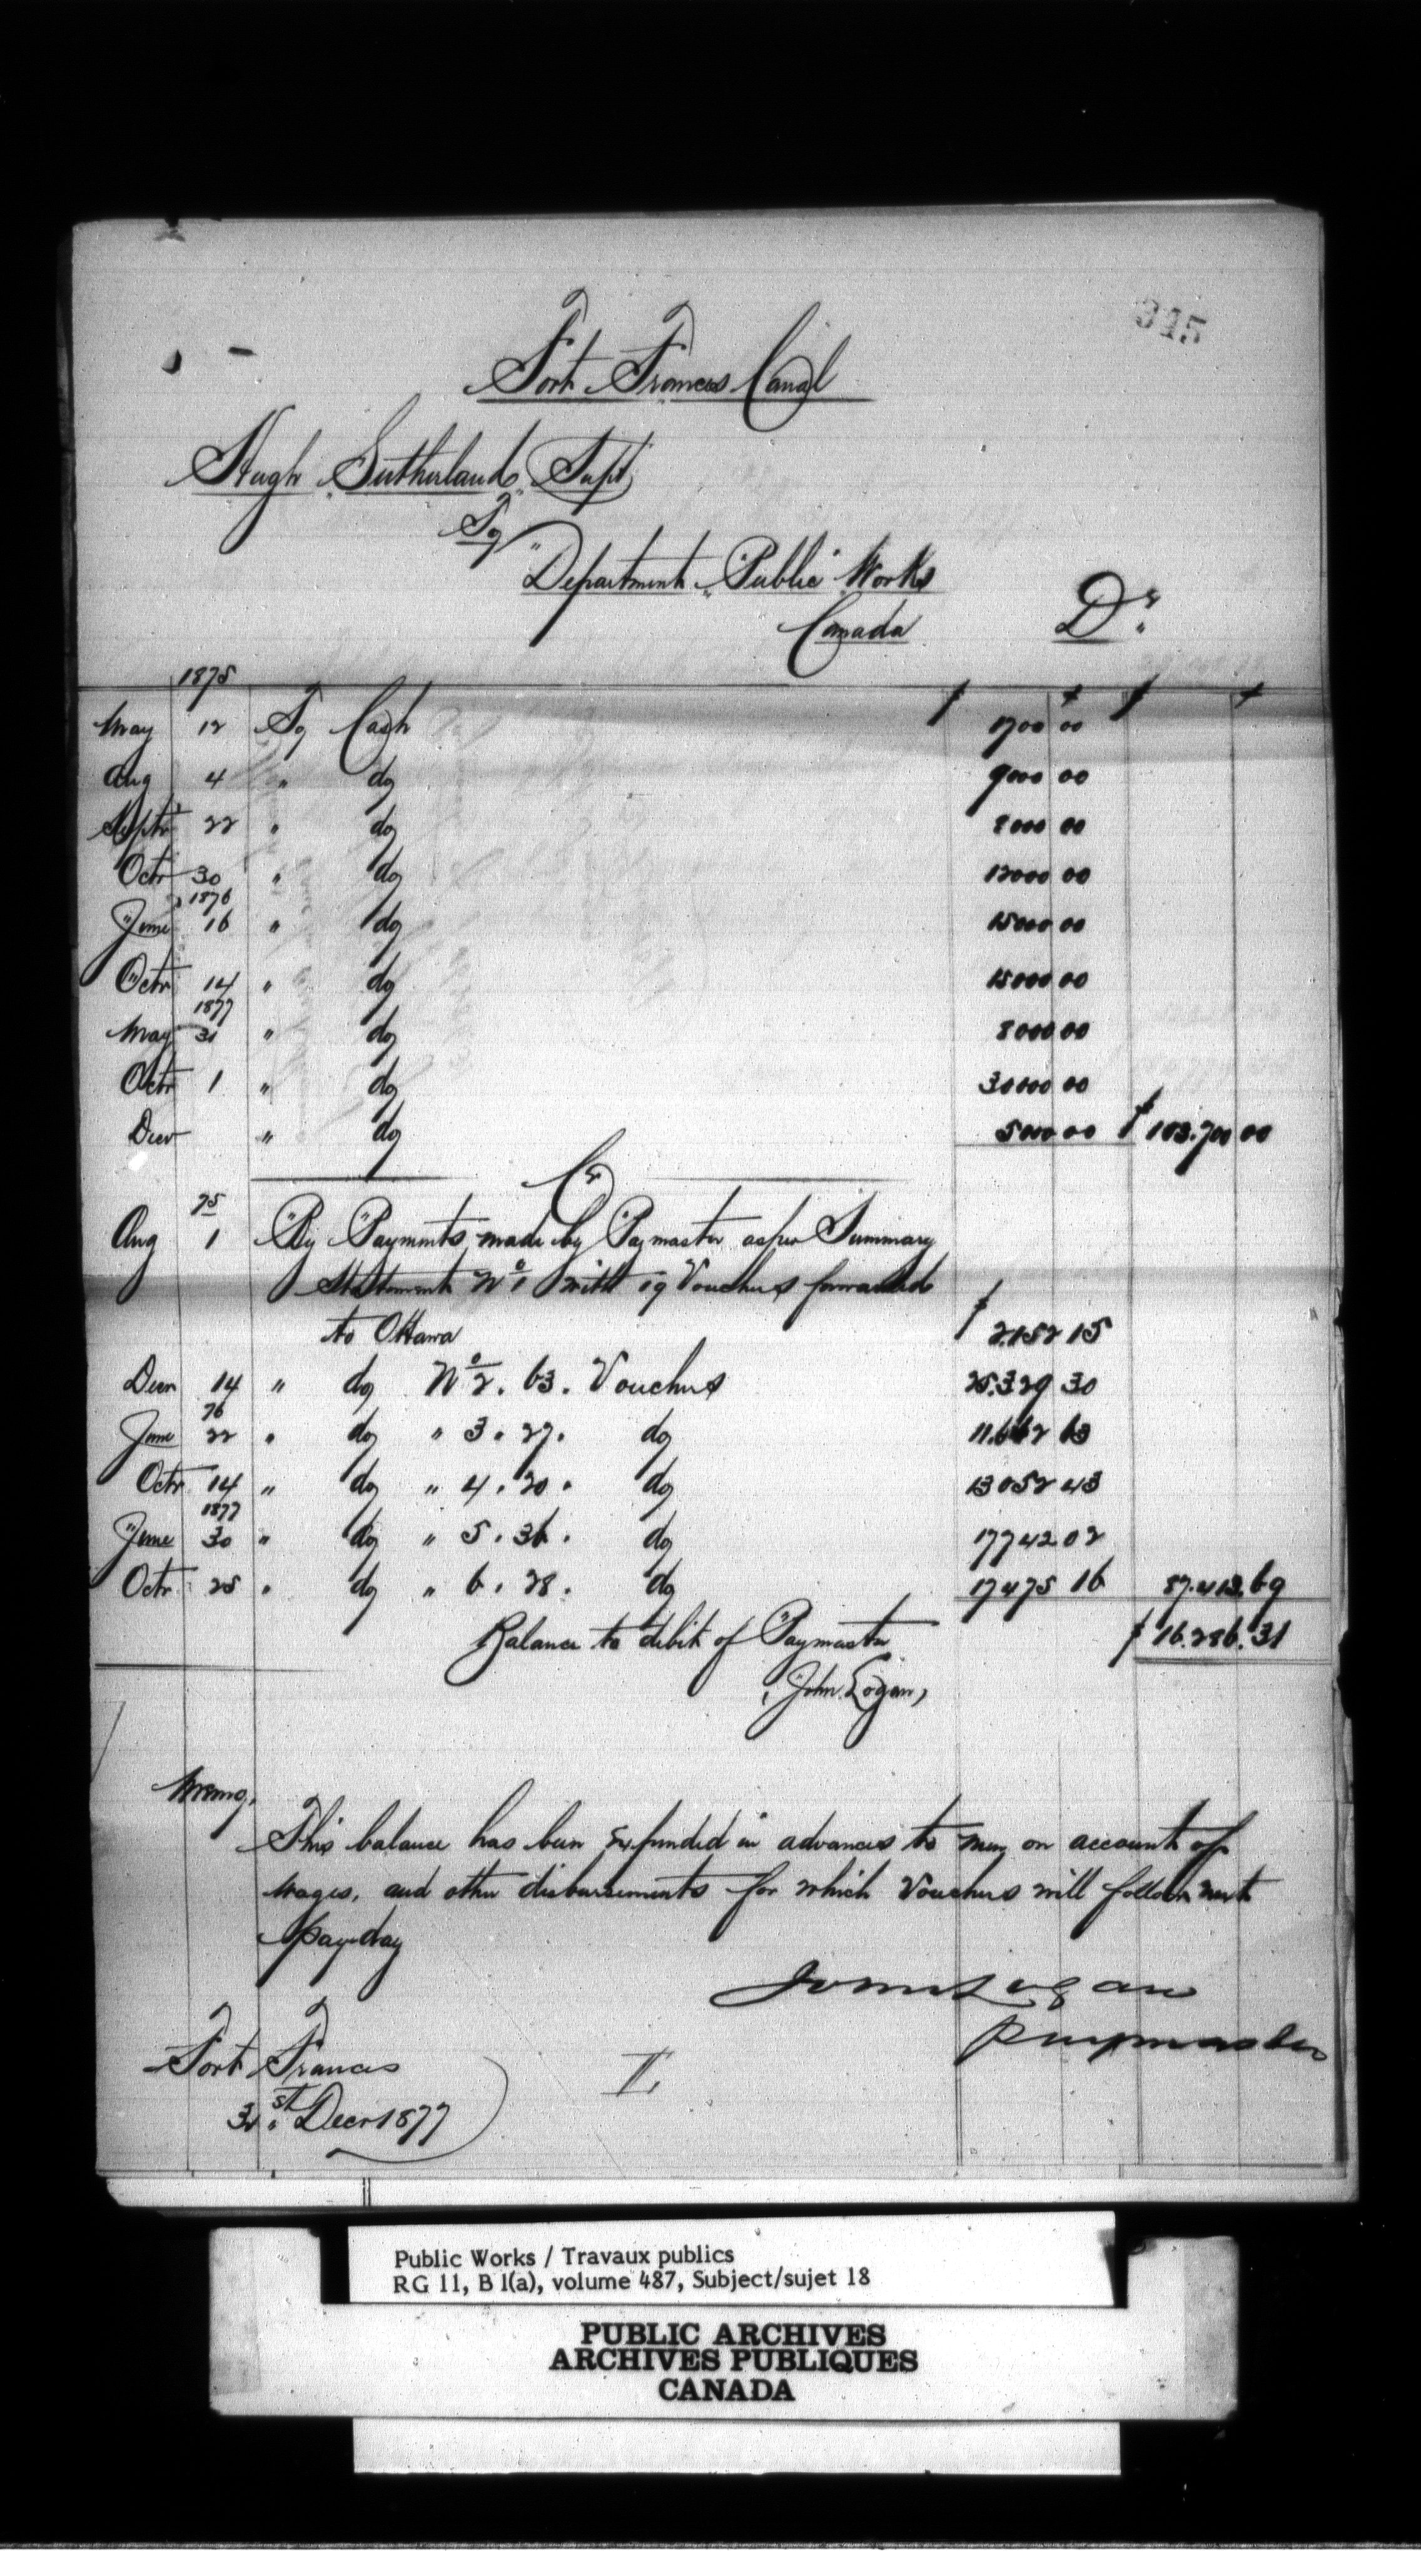 345
Fort Frances Canal
Hugh Sutherland Supt
To
Department Public Works
Canada Dr
1875 $ ¢ $ ¢
May 12 To Cash 1700 00
Aug 4 " do 9000 00
Septr 22 " do 8000 00
Octr 30 " do 12000 00
1876
June 16 " do 15000 00
Octr 14 " do 15000 00
1877
May 31 " do 8000 00
Octr 1 " do 30000 00
Decr " do 5000 00 $ 103.700 00
Cr
75
Aug 1 By Payments made by Paymaster as per Summary
Statement No 1 with 19 Vouchers forwarded
to Ottawa $ 2.152 15
Decr 14 " do No 2. 63. Vouchers 25.329 30
76
June 22 " do " 3. 27. do 11.662 63
Octr 14 " do " 4. 20. do 13052 43
1877
June 30 " do " 5. 36. do 17742 02
Octr 25 " do " 6. 28. do 17475 16 87.413.69
Balance to debit of Paymaster $ 16.286.31
(John Logan)
Memo.
This balance has been Expended in advances to men on account of
wages, and other disbursements for which Vouchers will follow next
pay-day
John Logan
Paymaster
Fort Frances
31st Decr 1877
II
Public Works / Travaux publics
RG 11, B 1(a), volume 487, Subject/sujet 18
PUBLIC ARCHIVES
ARCHIVES PUBLIQUES
CANADA